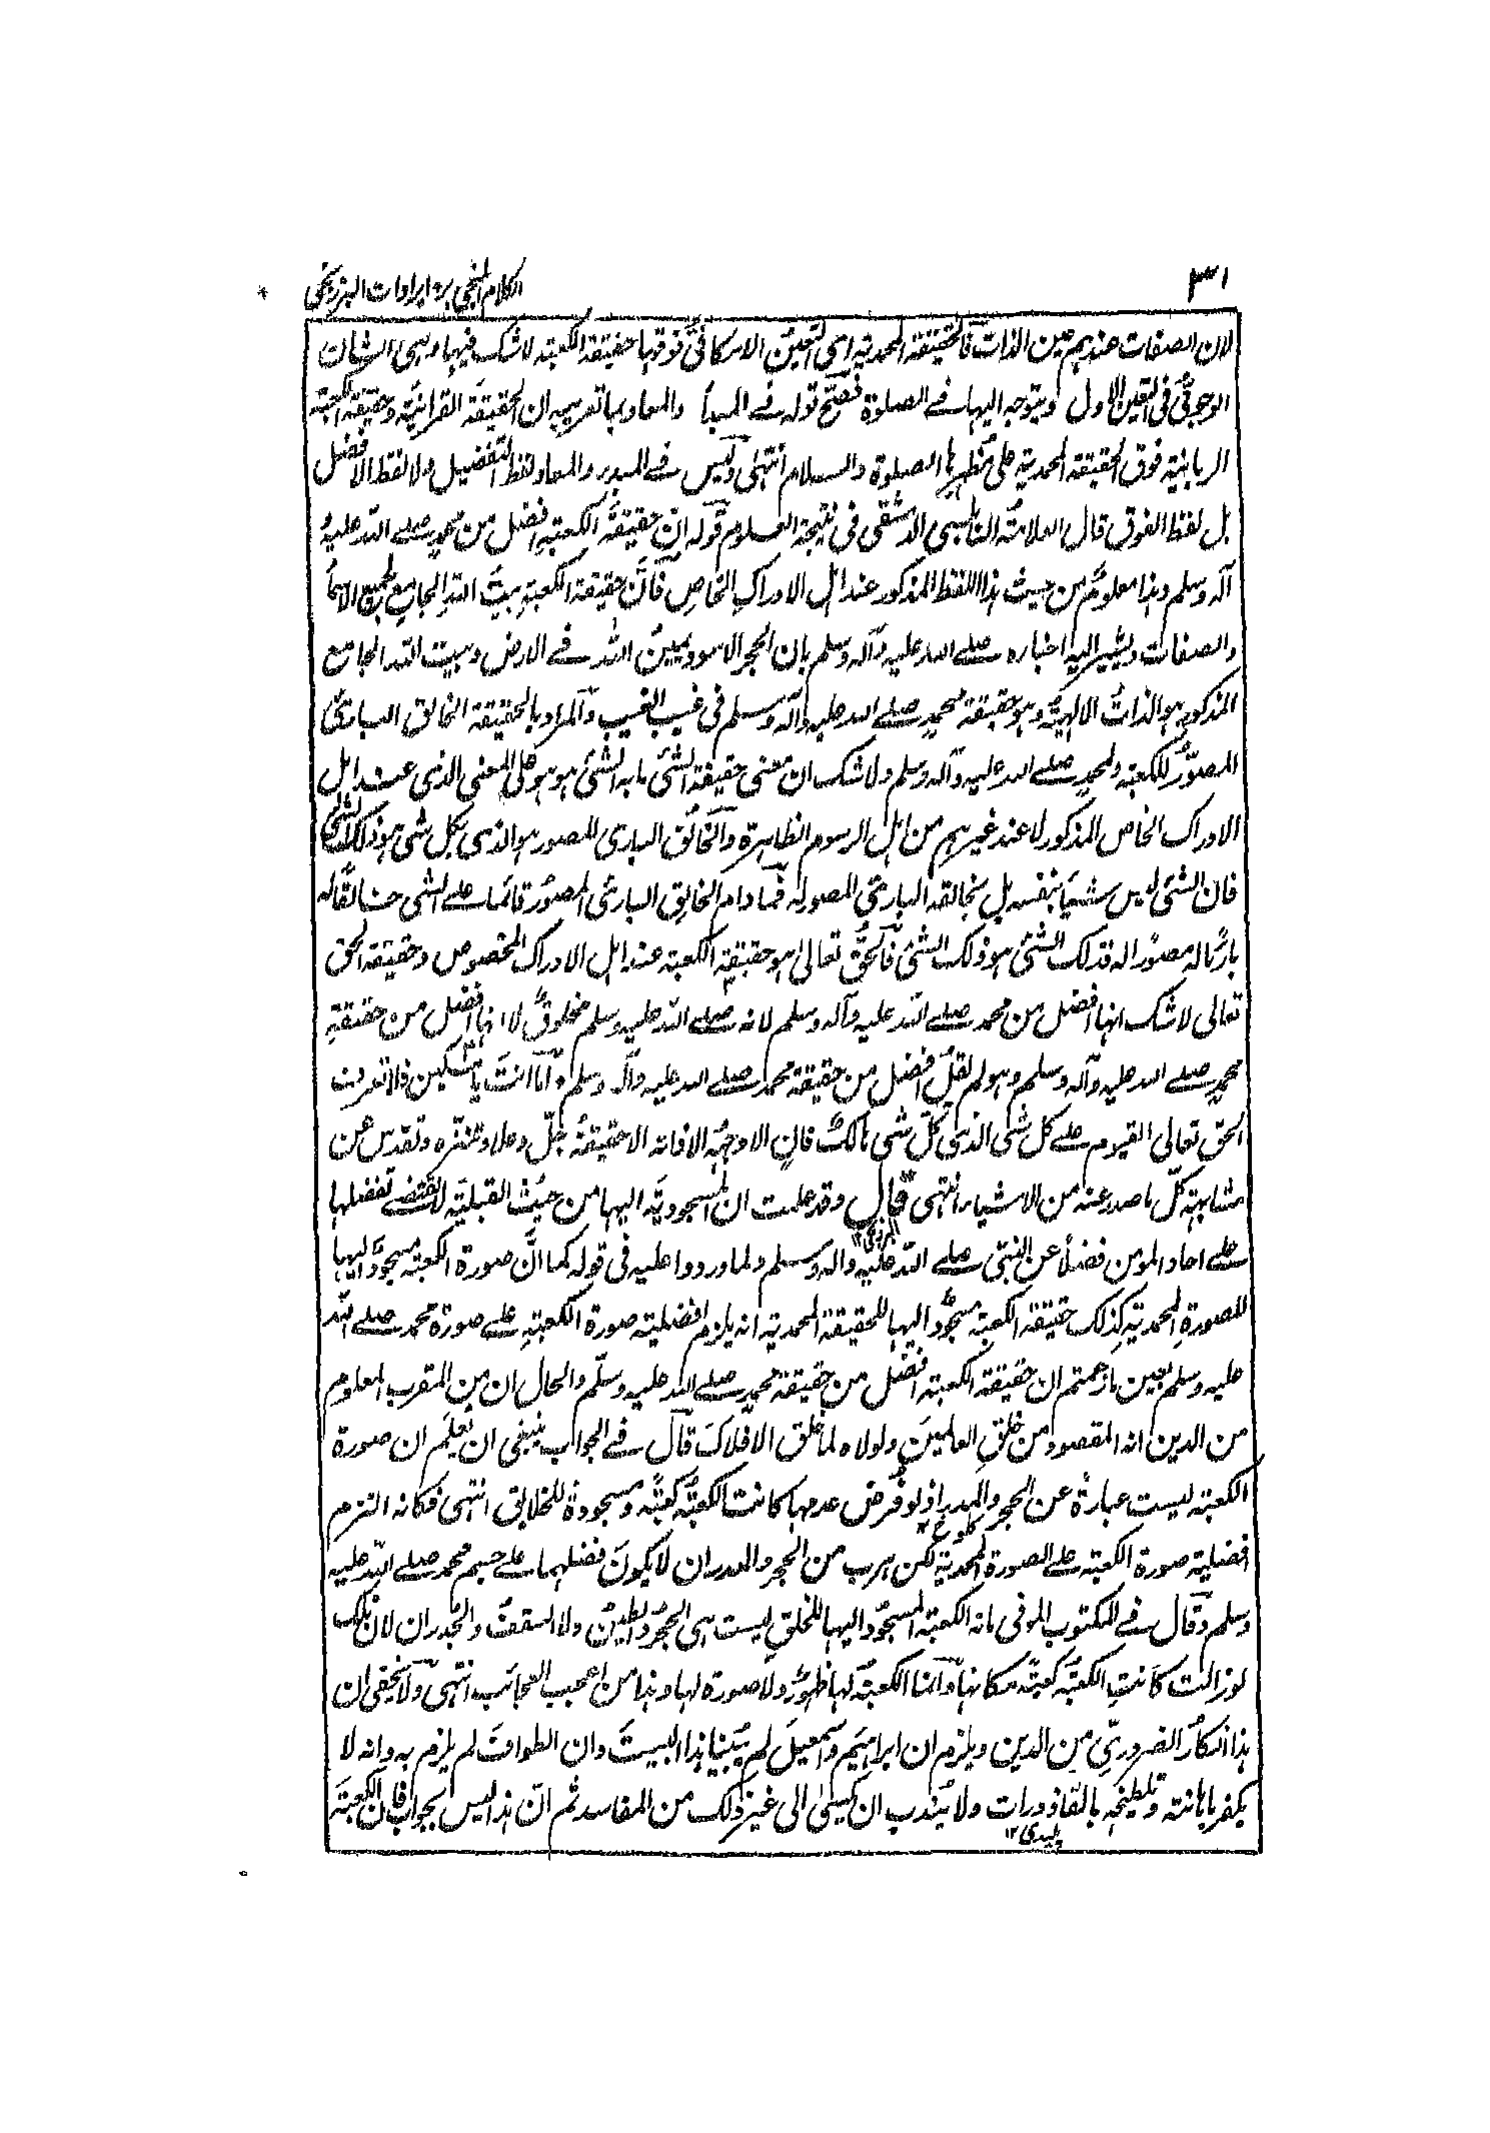 ٣١
الكلام المنجى برد ايرادات البرزنجى
لان الصفات عندهم عين الذات فالحقيقة المحمدية اى التعين الامكانى فوقها حقيقة الكعبة لاشك فيها وهى الشان
الوجوبى فى التعين الاول ويتوجه اليها فے الصلوة فصح قوله فے المبدأ والمعاد بما تعريبه ان الحقيقة القرانية وحقيقة الكعبة
الربانية فوق الحقيقة المحمدية على مظهرها الصلوة والسلام انتهى وليس فے المبدء والمعاد لفظ التفضيل ولا لفظ الافضل
بل لفظ الفوق قال العلامة النابلسى الدمشقى فى نتيجة العلوم قوله ان حقيقة الكعبة افضل من محمد صلے الله عليه
آله وسلم وهذا معلوم من حيث هذا اللفظ المذكور عند اهل الادراك الخاص فان حقيقة الكعبة بيت الله الجامع لجميع الاسماء
والصفات ويشير اليه اخباره صلے الله عليه وآله وسلم بان الحجر الاسود يمين الله فے الارض وبيت الله الجامع
المذكور هو الذات الالهية وهو حقيقة محمد صلے الله عليه وآله وسلم فى غيب الغيب والمراد بالحقيقة الخالق البارئ
المصور للكعبة ولمحمد صلے الله عليه وآله وسلم ولا شك ان معنى حقيقة الشئ ما به الشئ هو هو على المعنى الذى عند اهل
الادراك الخاص المذكور لا عند غيرهم من اهل الرسوم الظاهرة والخالق البارى المصور هو الذى بكل شى هو ذلك الشى
فان الشئ ليس شيئا بنفسه بل بخالقه البارئ المصور له فما دام الخالق البارئ المصور قائما علے الشى خالقا له
بارئا له مصورا له فذلك الشئ هو ذلك الشئ فالحق تعالى هو حقيقة الكعبة عند اهل الادراك المخصوص وحقيقة الحق
تعالى لا شك انها افضل من محمد صلے الله عليه وآله وسلم لانه صلے الله عليه وسلم مخلوق لا انها افضل من حقيقة
محمد صلے الله عليه وآله وسلم وهو لم يقل افضل من حقيقة محمد صلے الله عليه وآله وسلم واما انت يا مسكين فلا تعرف
الحق تعالى القيوم علے كل شى الذى كل شى هالك فان الا وجهه الا ذاته الا حقيقته جل وعلا وتنزه وتقدس عن
مشابهة كل ما صدر عنه من الاشياء انتهى قال وقد علمت ان المسجودية اليها من حيث القبلية لا يقتضے تفضلها
البرزنجى ١٢
علے احاد المؤمن فضلا عن النبى صلے الله عليه واله وسلم ولما وردوا عليه فى قوله كما ان صورة الكعبة مسجود اليها
للصورة المحمدية كذلك حقيقة الكعبة مسجود اليها للحقيقة المحمدية انه يلزم افضلية صورة الكعبة علے صورة محمد صلے الله
عليه وسلم بعين ما زعمتم ان حقيقة الكعبة افضل من حقيقة محمد صلے الله عليه وسلم والحال ان من المقرب المعلوم
من الدين انه المقصود من خلق العلمين ولولاه لما خلق الافلاك قال فے الجواب ينبغى ان يعلم ان صورة
الكعبة ليست عبارة عن الحجر والمدر اذ لو فرض عدمها كانت الكعبة كعبة ومسجودة للخلايق انتهى فكانه التزم
افضلية صورة الكعبة علے الصورة المحمدية لكن هرب من الحجر والمدر ان لا يكون فضلهما علے جسم محمد صلے الله عليه
وسلم وقال فے المكتوب الموفى مائة الكعبة المسجود اليها للخلق ليست هى الحجر والطين ولا السقف والجدران لان تلك
لو زالت كانت الكعبة كعبة مكانها وانما الكعبة لها ظهور ولا صورة لها وهذا من اعجب العجائب انتهى ولا يخفى ان
هذا انكار الضرورى من الدين ويلزم ان ابراهيم واسمعيل لم يبنيا هذا البيت وان الطواف لم يلزم به وانه لا
يكفر باهانته وتلطيخه بالقاذورات ولا يندب ان يكسى الى غير ذلك من المفاسد ثم ان هذا ليس بجواب فان الكعبة
پليدى ١٢